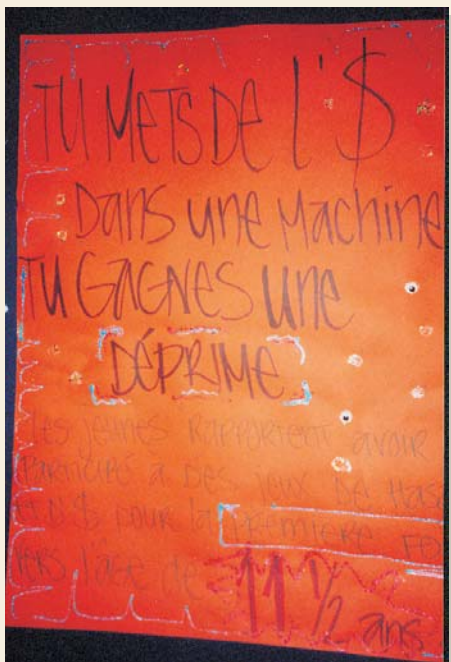 TU METS DE L'$
DANS UNE MACHINE
TU GAGNES UNE
DÉPRIME
Les jeunes rapportent avoir
participé à des jeux de Has
et d'$ pour la première FO
vers l'âge de 11 1/2 ans